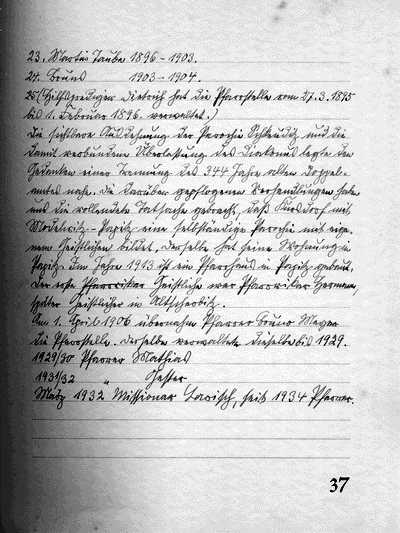 23. Martin Taube 1896 - 1903.
24. Bruns 1903 - 1904.
25 (Hilfsprediger Dietrich hat die Pfarrstelle vom 27.3.1895
bis 1. Februar 1896 verwaltet.)
Die sichtbare Ausdehnung der Parochie Schkeuditz und die
damit verbundene Überlastung des Diakonus legte den
Gedanken einer Trennung des 344 Jahre alten Doppel-
amtes nahe. Die darüber gepflogenen Verhandlungen haben
uns die vollendete Tatsache gebracht, daß Kursdorf mit
Modelwitz - Papitz eine selbständige Parochie mit eige-
nem Geistlichen bildet. Derselbe hat seine Wohnung in
Papitz. Im Jahre 1913 ist ein Pfarrhaus in Papitz gebaut.
Der erste Pfarrvikar Geistliche war Pfarrvikar Hermann,
später Geistlicher in Altscherbitz.
Am 1. April 1906 übernahm Pfarrer Bruno Meyer
die Pfarrstelle. Derselbe verwaltete dieselbe bis 1929.
1929/30 Pfarrer Mathias
1931/32 "
März 1932 Missionar Larisch, seit 1934 Pfarrer.
37